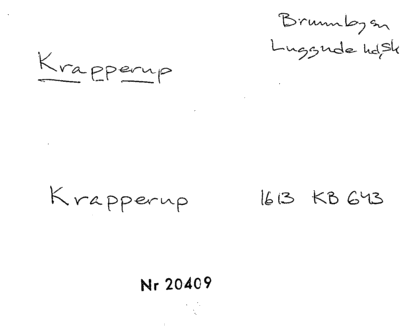 Brunnby sn
Luggude hd, Sk
Krapperup
Krapperup 1613 KB 643
Nr 20409